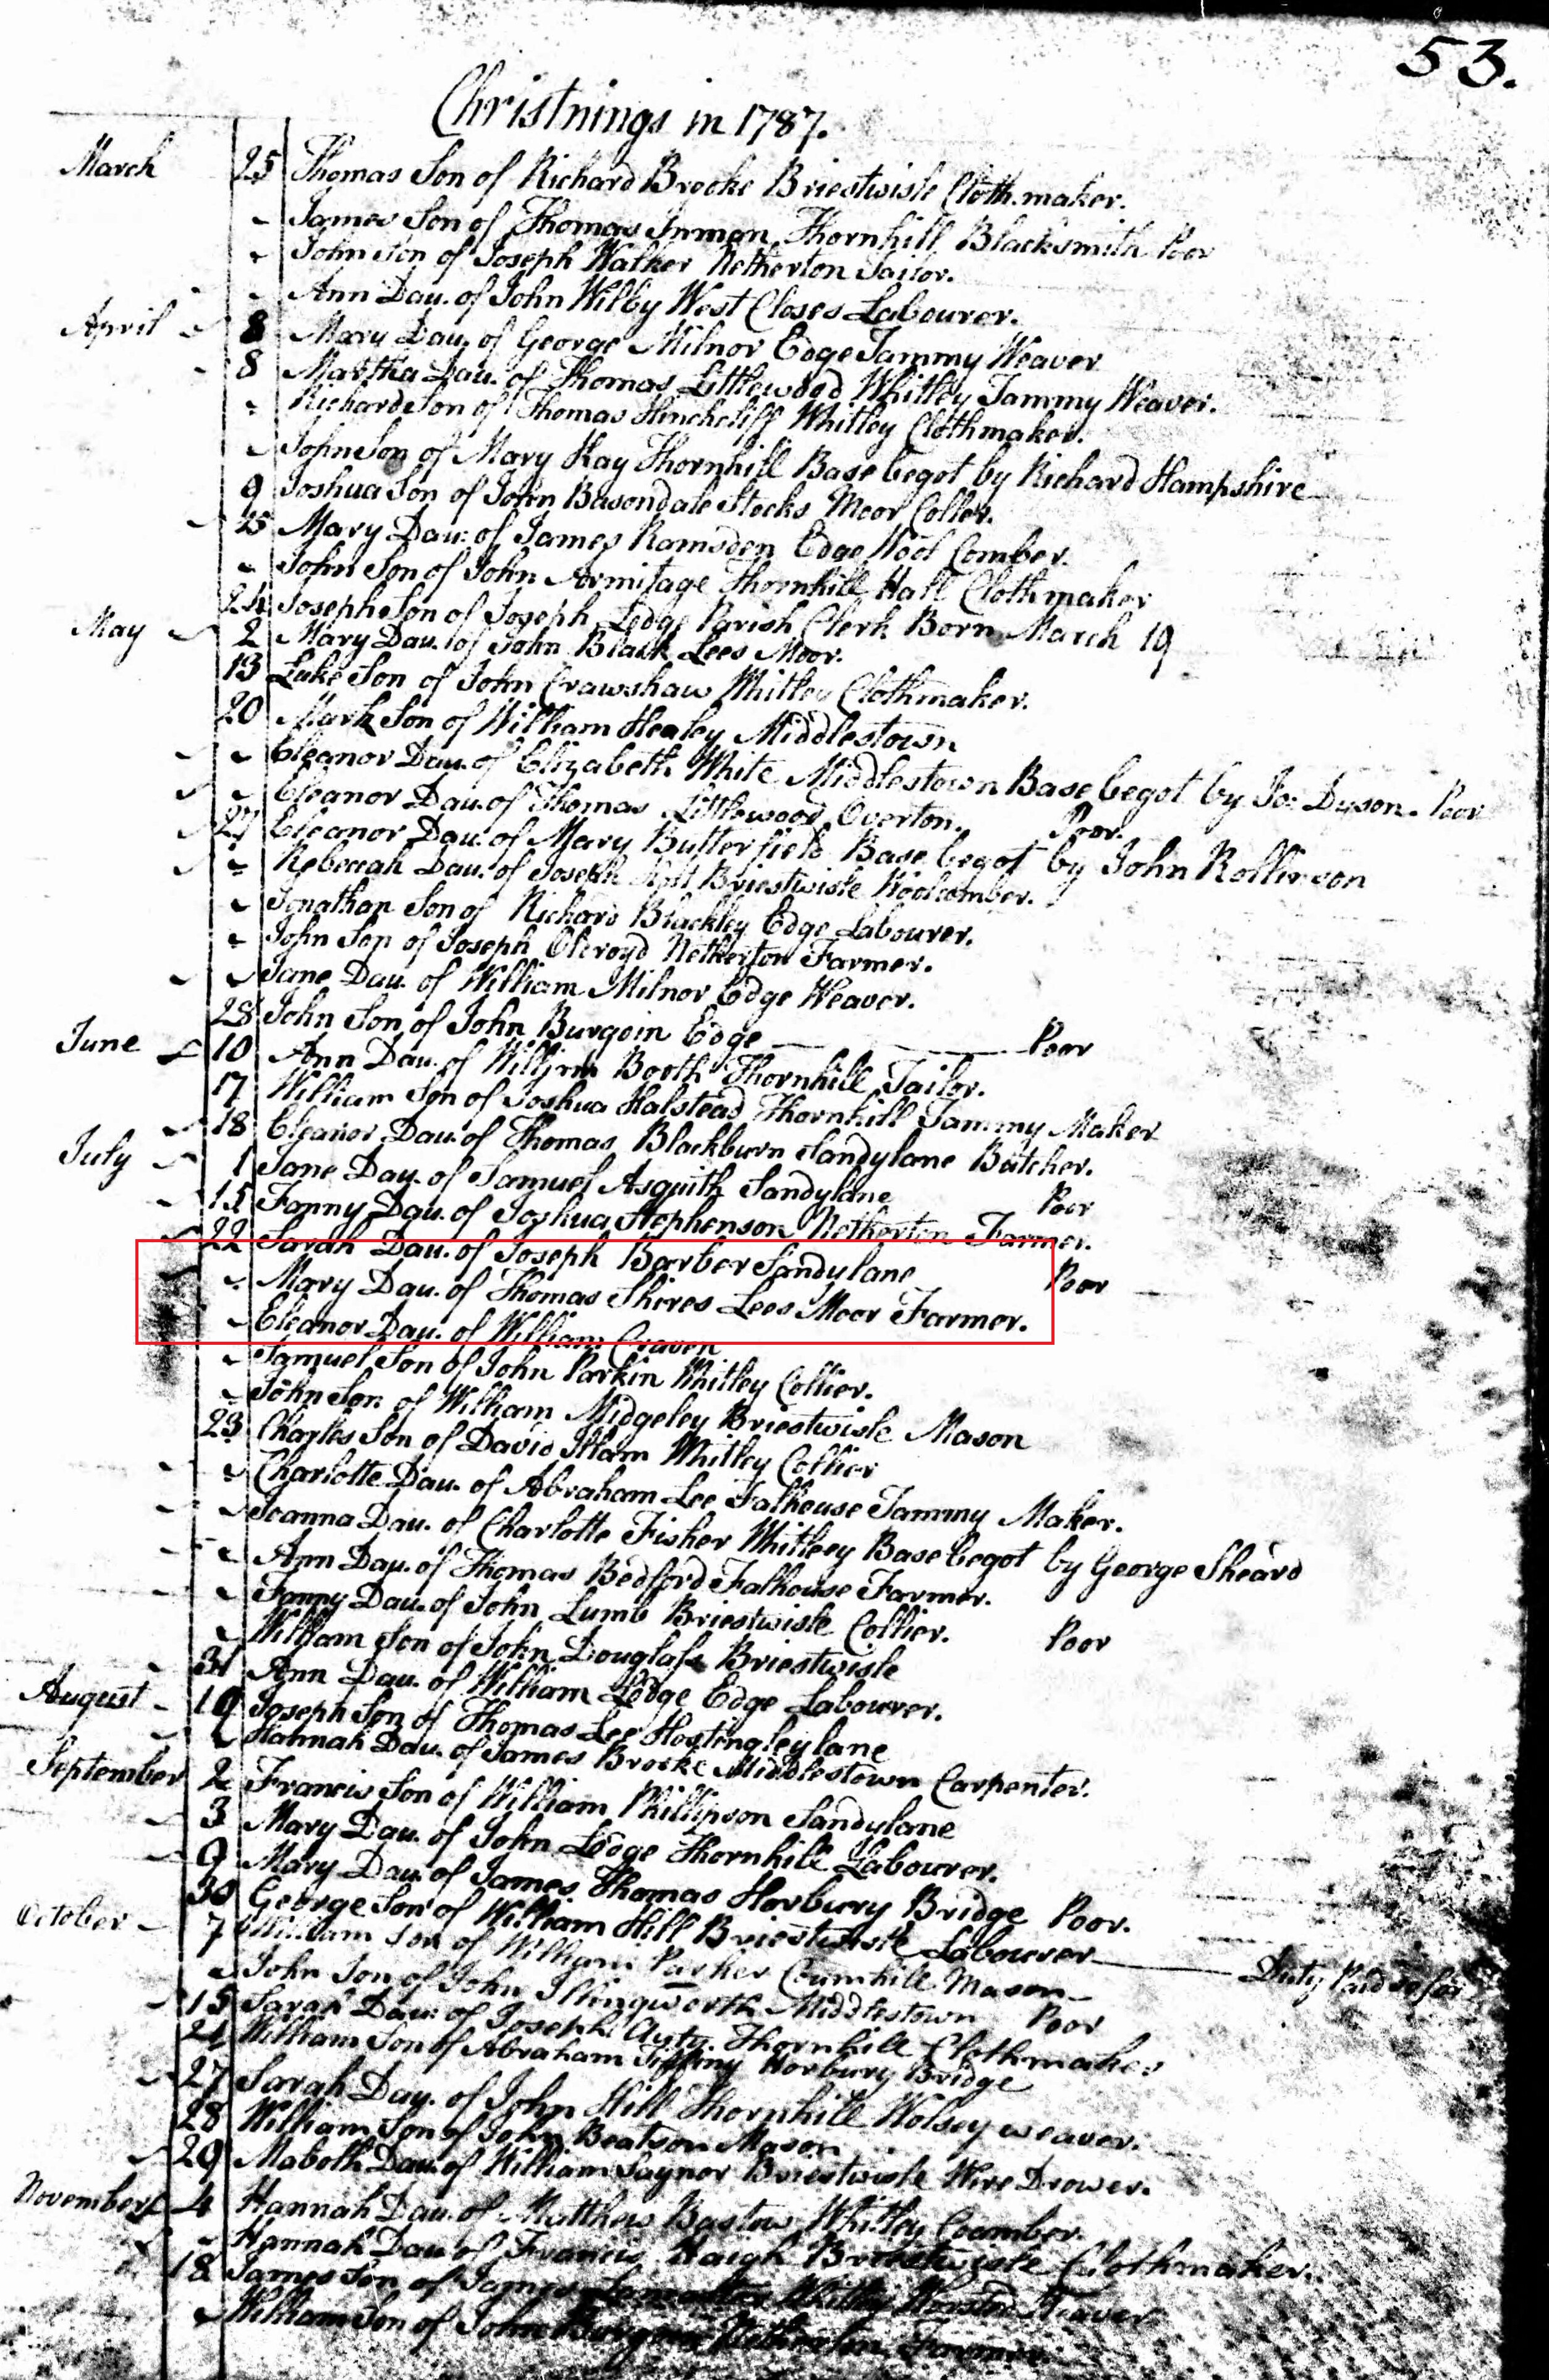 53.
Christnings in 1787.
March 25 Thomas Son of Richard Brooke Briestwisle Cloth.maker.
James Son of Thomas Inman Thornhill Blacksmith Poor
John Son of Joseph Walker Netherton Tailor.
Ann Dau. of John Wilby West Closes Labourer.
April 8 Mary Dau. of George Milnor Edge Tammy Weaver
8 Martha Dau. of Thomas Littlewood Whitley Tammy Weaver.
Richard Son of Thomas Hinchcliff Whitley Clothmaker.
John Son of Mary Kay Thornhill Base begot by Richard Hampshire
9 Joshua Son of John Basondale Stocks Moor Coller.
25 Mary Dau. of James Ramsden Edge Wool Comber.
John Son of John Armitage Thornhill Hall Clothmaker
24 Joseph Son of Joseph Ledge Parish Clerk Born March 19
May 2 Mary Dau. of John Black Lees Moor.
13 Luke Son of John Crawshaw Whitley Clothmaker.
20 Mark Son of William Healey Middlestown
Eleanor Dau. of Elizabeth White Middlestown Base begot by Jo: Dyson. Poor
Eleanor Dau. of Thomas Littlewood Overton. Poor.
27 Eleanor Dau. of Mary Butterfield Base begot by John Rollinson
Rebeccah Dau. of Joseph Briestwisle Woolcomber.
Jonathan Son of Richard Blackley Edge Labourer.
John Son of Joseph Olroyd Netherton Farmer.
Jane Dau. of William Milnor Edge Weaver.
28 John Son of John Burgoin Edge Poor
June 10 Ann Dau. of Willjm Booth Thornhill Tailor.
17 William Son of Joshua Halstead Thornhill Tammy Maker
18 Eleanor Dau. of Thomas Blackburn Sandylane Butcher.
July 1 Jane Dau. of Samuel Asquith Sandylane Poor
15 Fanny Dau. of Joshua Stephenson Netherton Farmer.
22 Sarah Dau. of Joseph Barber Sandylane Poor
Mary Dau. of Thomas Shires Lees Moor Farmer.
Eleanor Dau. of William Craven
Samuel Son of John Parkin Whitley Collier.
John Son of William Midgeley Briestwisle Mason
23 Charles Son of David Whitley Collier
Charlotte Dau. of Abraham Lee Falhouse Tammy Maker.
Joanna Dau. of Charlotte Fisher Whitley Base begot by George Sheard
Ann Dau. of Thomas Bedford Falhouse Farmer.
Fanny Dau. of John Lumb Briestwisle Collier. Poor
William Son of John Douglass Briestwisle
31 Ann Dau. of William Ledge Edge Labourer.
August 19 Joseph Son of Thomas Lee Hostingley lane
Hannah Dau. of James Brooke Middlestown Carpenter.
September 2 Francis Son of William Phillipson Sandylane
3 Mary Dau. of John Ledge Thornhill Labourer.
9 Mary Dau. of James Thomas Horbury Bridge Poor.
30 George Son of William Hill Briestwisle Labourer Duty Paid so far
October 7 William Son of William Parker Coumhill Mason
John Son of John Illingworth Middlestown Poor
15 Sarah Dau. of Joseph Auty Thornhill Clothmaker
21 William Son of Abraham Horbury Bridge
27 Sarah Dau. of John Hill Thornhill Wolsey weaver.
28 William Son of John Beatson Mason
29 Maboth Dau. of William Saynor Briestwisle Wire Drower.
November 4 Hannah Dau. of Matthew Bastow Whitley Coomber.
Hannah Dau. of Francis Haigh Briestwisle Clothmaker.
18 James Son of James Whitley Worsted Weaver
William Son of John Netherton Farmer